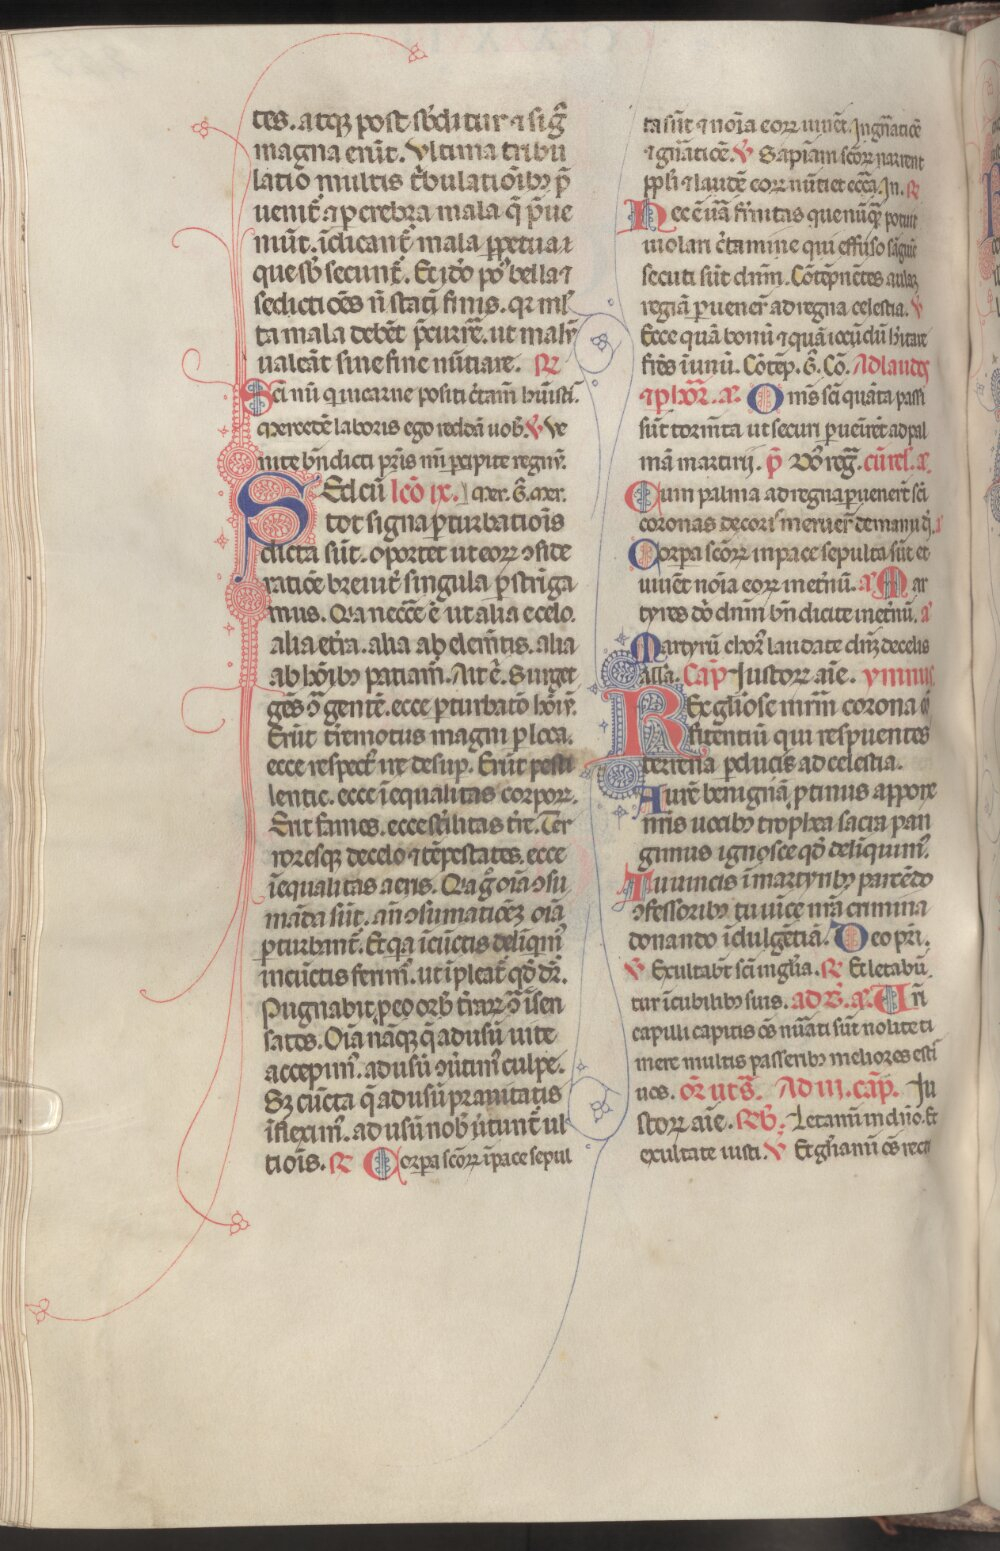 tes. atqꝫ post sb̓ditur ⁊ sig̃
magna erũt. Vltima tribu
latio multis t̓bulatiõibꝰ p̃
uenit̃. ⁊ ꝑ crebra mala q̃ p̃ue
niũt. ĩdicant̃ mala ꝑpetua ⁊
que sb̓ secunt̃. Et iõ pꝰ bella ⁊
seditiões ñ statĩ finis. qꝛ ml̓
ta mala debẽt p̃curre̓. ut malũ
ualeãt sine fine nũtiare. ℟
Sc̃i mĩ q̓ in carne positi c̓tam̃ hũisti.
Mercedẽ laboris ego reddã uob̓. ℣ Ve
nite bñdicti pr̃is mĩ ꝑcipite regnũ.
Sed cũ lc̃o ix. Mer. G̃. Mer.
tot signa ꝑturbatiõis
dicta sũt. oportet ut eoꝝ ↄside
ratiõe breuit̃ singula ꝑstrĩga
mus. Q̓a necc̃e ẽ ut alia e celo.
alia e tr̃a. alia ab elem̃tis. alia
ab hõibꝰ patiam̃. Ait.ẽ. Surget
gẽs ↄ̃ gentẽ. ecce ꝑturbatõ hõiũ.
Erũt tr̃emotus magni ꝑ loca.
ecce respectꝰ ire desuꝑ. Erũt pesti
lentie. ecce ĩequalitas corpoꝝ.
Erit fames. ecce st̓ilitas tr̃e. Ter
roresqꝫ de celo ⁊ tẽpestates. ecce
ĩequalitas aeris. Q̓a g̊ oĩa ↄsu
mãda sũt. añ ↄsumationẽ oĩa
ꝑturbant̃. Et q̓a ĩ cũctis deliq̓mꝰ
in cũctis ferimꝰ. ut ĩpleat̃ qđ dr̃.
Pugnabit ꝓ eo orb̓ tr̃arꝝ ↄ̃ ĩsen
satos. Oĩa nãqꝫ q̃ ad usũ uite
accepimꝰ. ad usũ ↄũtimꝰ culpe.
Sꝫ cũcta q̃ ad usũ prauitatis
ĩfleximꝰ. ad usũ nob̓ ũtunt̃ ul
tiõis. ℟ Corpa sc̃oꝝ ĩ pace sepul
ta sũt ⁊ noĩa eoꝝ uiuẽt. In gñatiõe
⁊ gñatiõẽ. ℣ Sapiam sc̃oꝝ narrent
ppl̓i ⁊ laudẽ eoꝝ nũtiet ecc̃a. In. ℟
Hec ẽ uã frñitas que nũqꝫ potuit
uiolari c̓tamine qui effuso sãguĩe
secuti sũt dnm̃. Cõtẽpnẽtes aulaꝫ
regiã ꝑuener̃ ad regna celestia. ℣
Ecce quã bonũ ⁊ quã iocũdũ h̓itare
fr̃es ĩ unũ. Cõtẽp. G̃. Cõ. Ad laudes
⁊ ꝑ hor̃. a᷑. Oms̃ sc̃i quãta passi
sũt torm̃ta ut securi ꝑueniret ad pal
mã martirij. p̃ Dñs reg̃. cũ rel̓. a᷑.
Cum palma ad regna ꝑuener̃t sc̃i
coronas decoris meruer̃ de manu di̓. a᷑
Corpa sc̃oꝝ in pace sepulta sũt et
uiuẽt noĩa eoꝝ in et̓nũ. a᷑ Mar
tyres dñi dnm̃ bñdicite in et̓nũ. a᷑
Martyrũ chorꝰ laudate dñꝫ de celis
alla. Cap̃ Iustoꝝ aĩe. ymnus.
Rex gl̓iose mr̃m̃ corona ↄ̃
fitentiũ qui respuentes
terrena ꝑducis ad celestia.
Aurẽ benignã ꝓtinus appone
nr̃is uocibꝰ trophea sacra pan
gimus ignosce qđ deliquimꝰ.
Tu uincis ĩ martyribꝰ parcẽdo
ↄfessoribꝰ tu uĩce nr̃a crimina
donando ĩdulgẽtiã. Deo pri.
℣ Exultabt̃ sc̃i in gl̓ia. ℟ Et letabũ
tur ĩ cubilibꝰ suis. ad B̃. a᷑. Uri
capilli capitis õs nũati sũt nolite ti
mere multis passeribꝰ meliores esti
uos. or̃ ut s̃. Ad iij. cap̃. Iu
stoꝝ aĩe. ℟ b̃. Letamĩ in dño. Et
exultate iusti. ℣ Et gl̓iamĩ õs recti